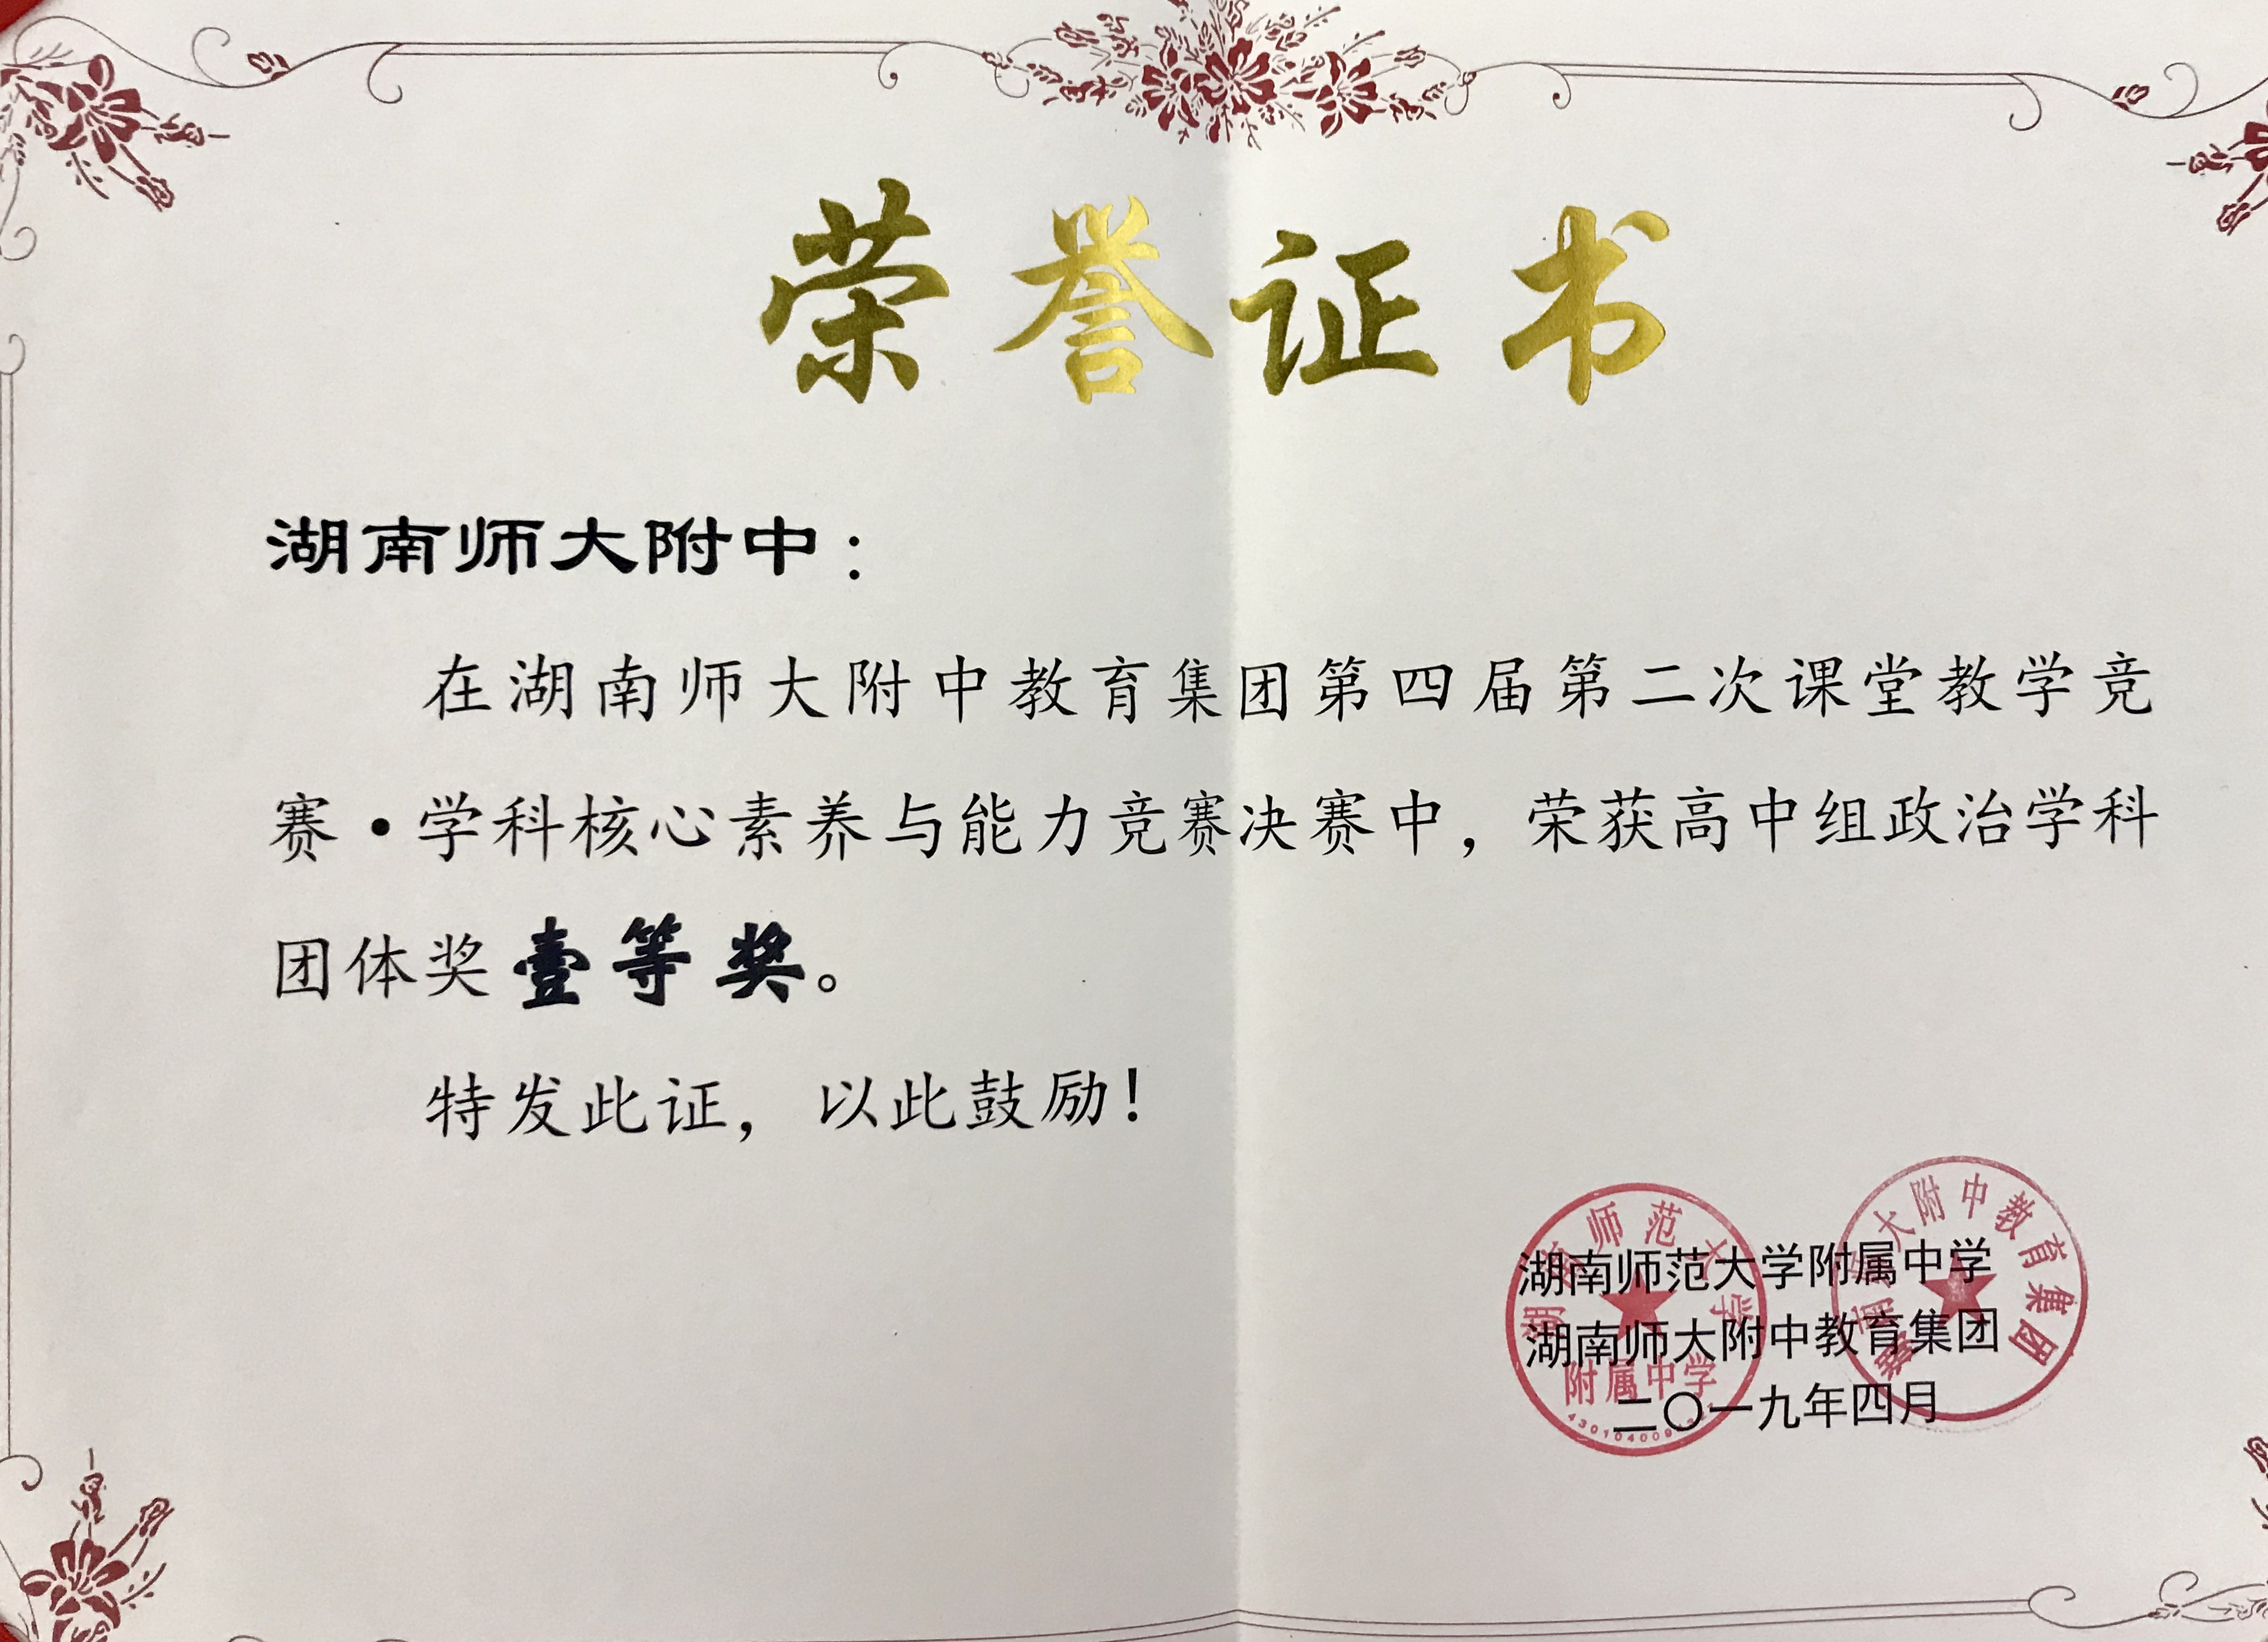 荣誉证书
湖南师大附中：
在湖南师大附中教育集团第四届第二次课堂教学竞
赛·学科核心素养与能力竞赛决赛中，荣获高中组政治学科
团体奖壹等奖。
特发此证，以此鼓励！
湖南师范大学附属中学
湖南师大附中教育集团
二〇一九年四月
湖南师范大学
附属中学
湖南师大附中教育集团